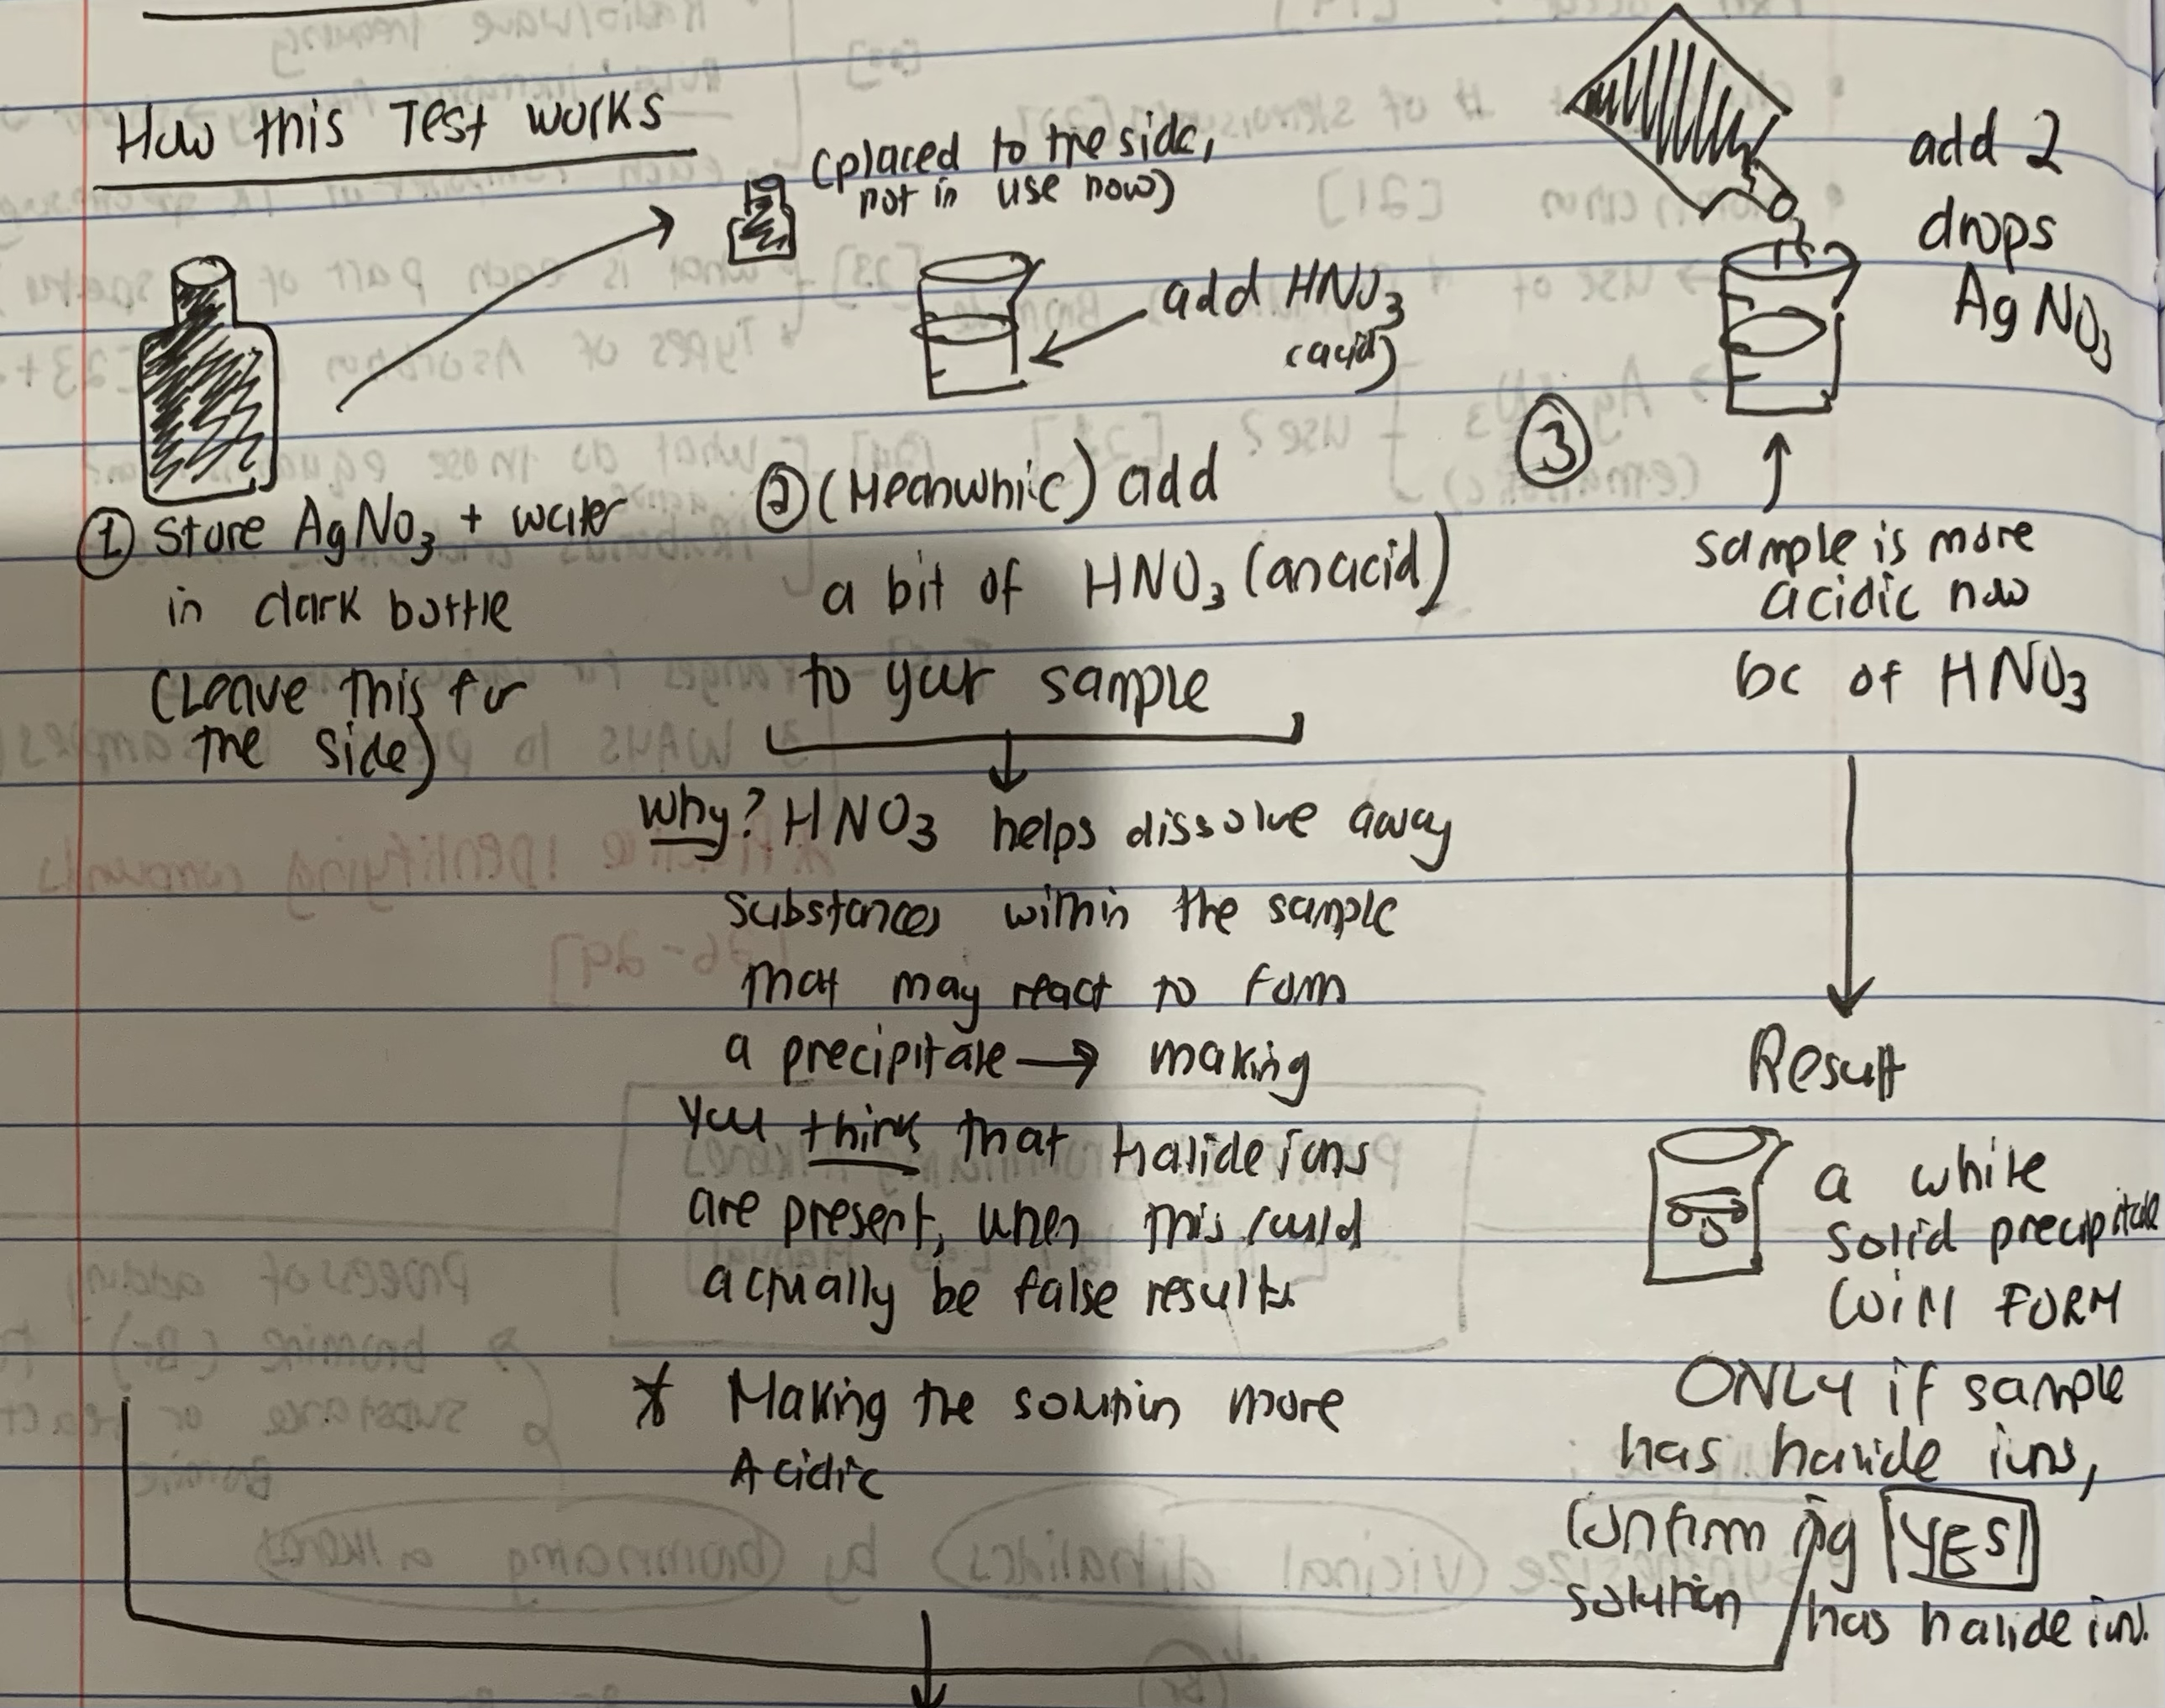 How this Test works
(placed to the side,
not in use now)
add HNO3
(acid)
add 2
drops
AgNO3
① Store AgNO3 + water
in dark bottle
(Leave this for
the side)
② (Meanwhile) add
a bit of HNO3 (an acid)
to your sample
Why? HNO3 helps dissolve away
substances within the sample
that may react to form
a precipitate → making
you think that halide ions
are present, when this could
actually be false results
* Making the solution more
Acidic
③
sample is more
acidic now
bc of HNO3
Result
a white
solid precipitate
will FORM
ONLY if sample
has halide ions,
confirming YES
solution has halide ions.